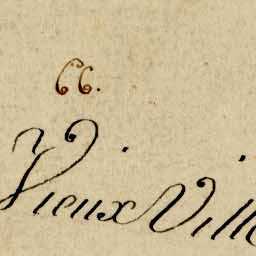 66.
Vieux Ville